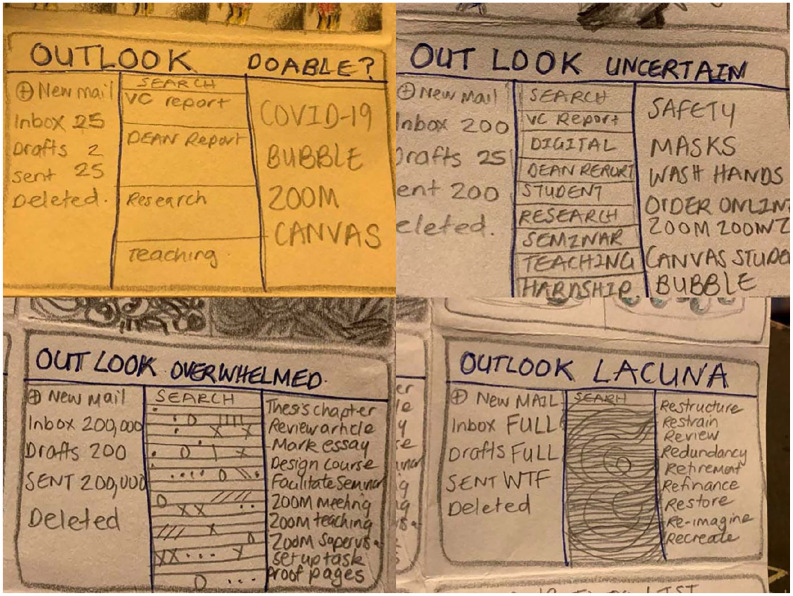 OUTLOOK DOABLE?
⊕ New mail
Inbox 25
Drafts 2
Sent 25
Deleted.
SEARCH
VC report
DEAN Report
Research
Teaching
COVID-19
BUBBLE
ZOOM
CANVAS
OUT LOOK UNCERTAIN
⊕ New mail
Inbox 200
Drafts 25
ent 200
eleted.
SEARCH
VC Report
DIGITAL
DEAN REPORT
STUDENT
RESEARCH
SEMINAR
TEACHING
HARDSHIP
SAFETY
MASKS
WASH HANDS
ORDER ONLIN
ZOOM ZOOM Z
CANVAS STUDE
BUBBLE
OUT LOOK OVERWHELMED.
⊕ New Mail
Inbox 200,000
Drafts 200
SENT 200,000
Deleted
SEARCH
Thesis chapter
Review article
Mark essay
Design course
Facilitate Seminar
ZOOM meeting
ZOOM teaching
ZOOM supervis
set up task
Proof pages
OUTLOOK LACUNA
⊕ New MAIL
Inbox FULL
Drafts FULL
SENT WTF
Deleted
SEARCH
Restructure
Restrain
Review
Redundancy
Retirement
Refinance
Restore
Re-imagine
Recreate